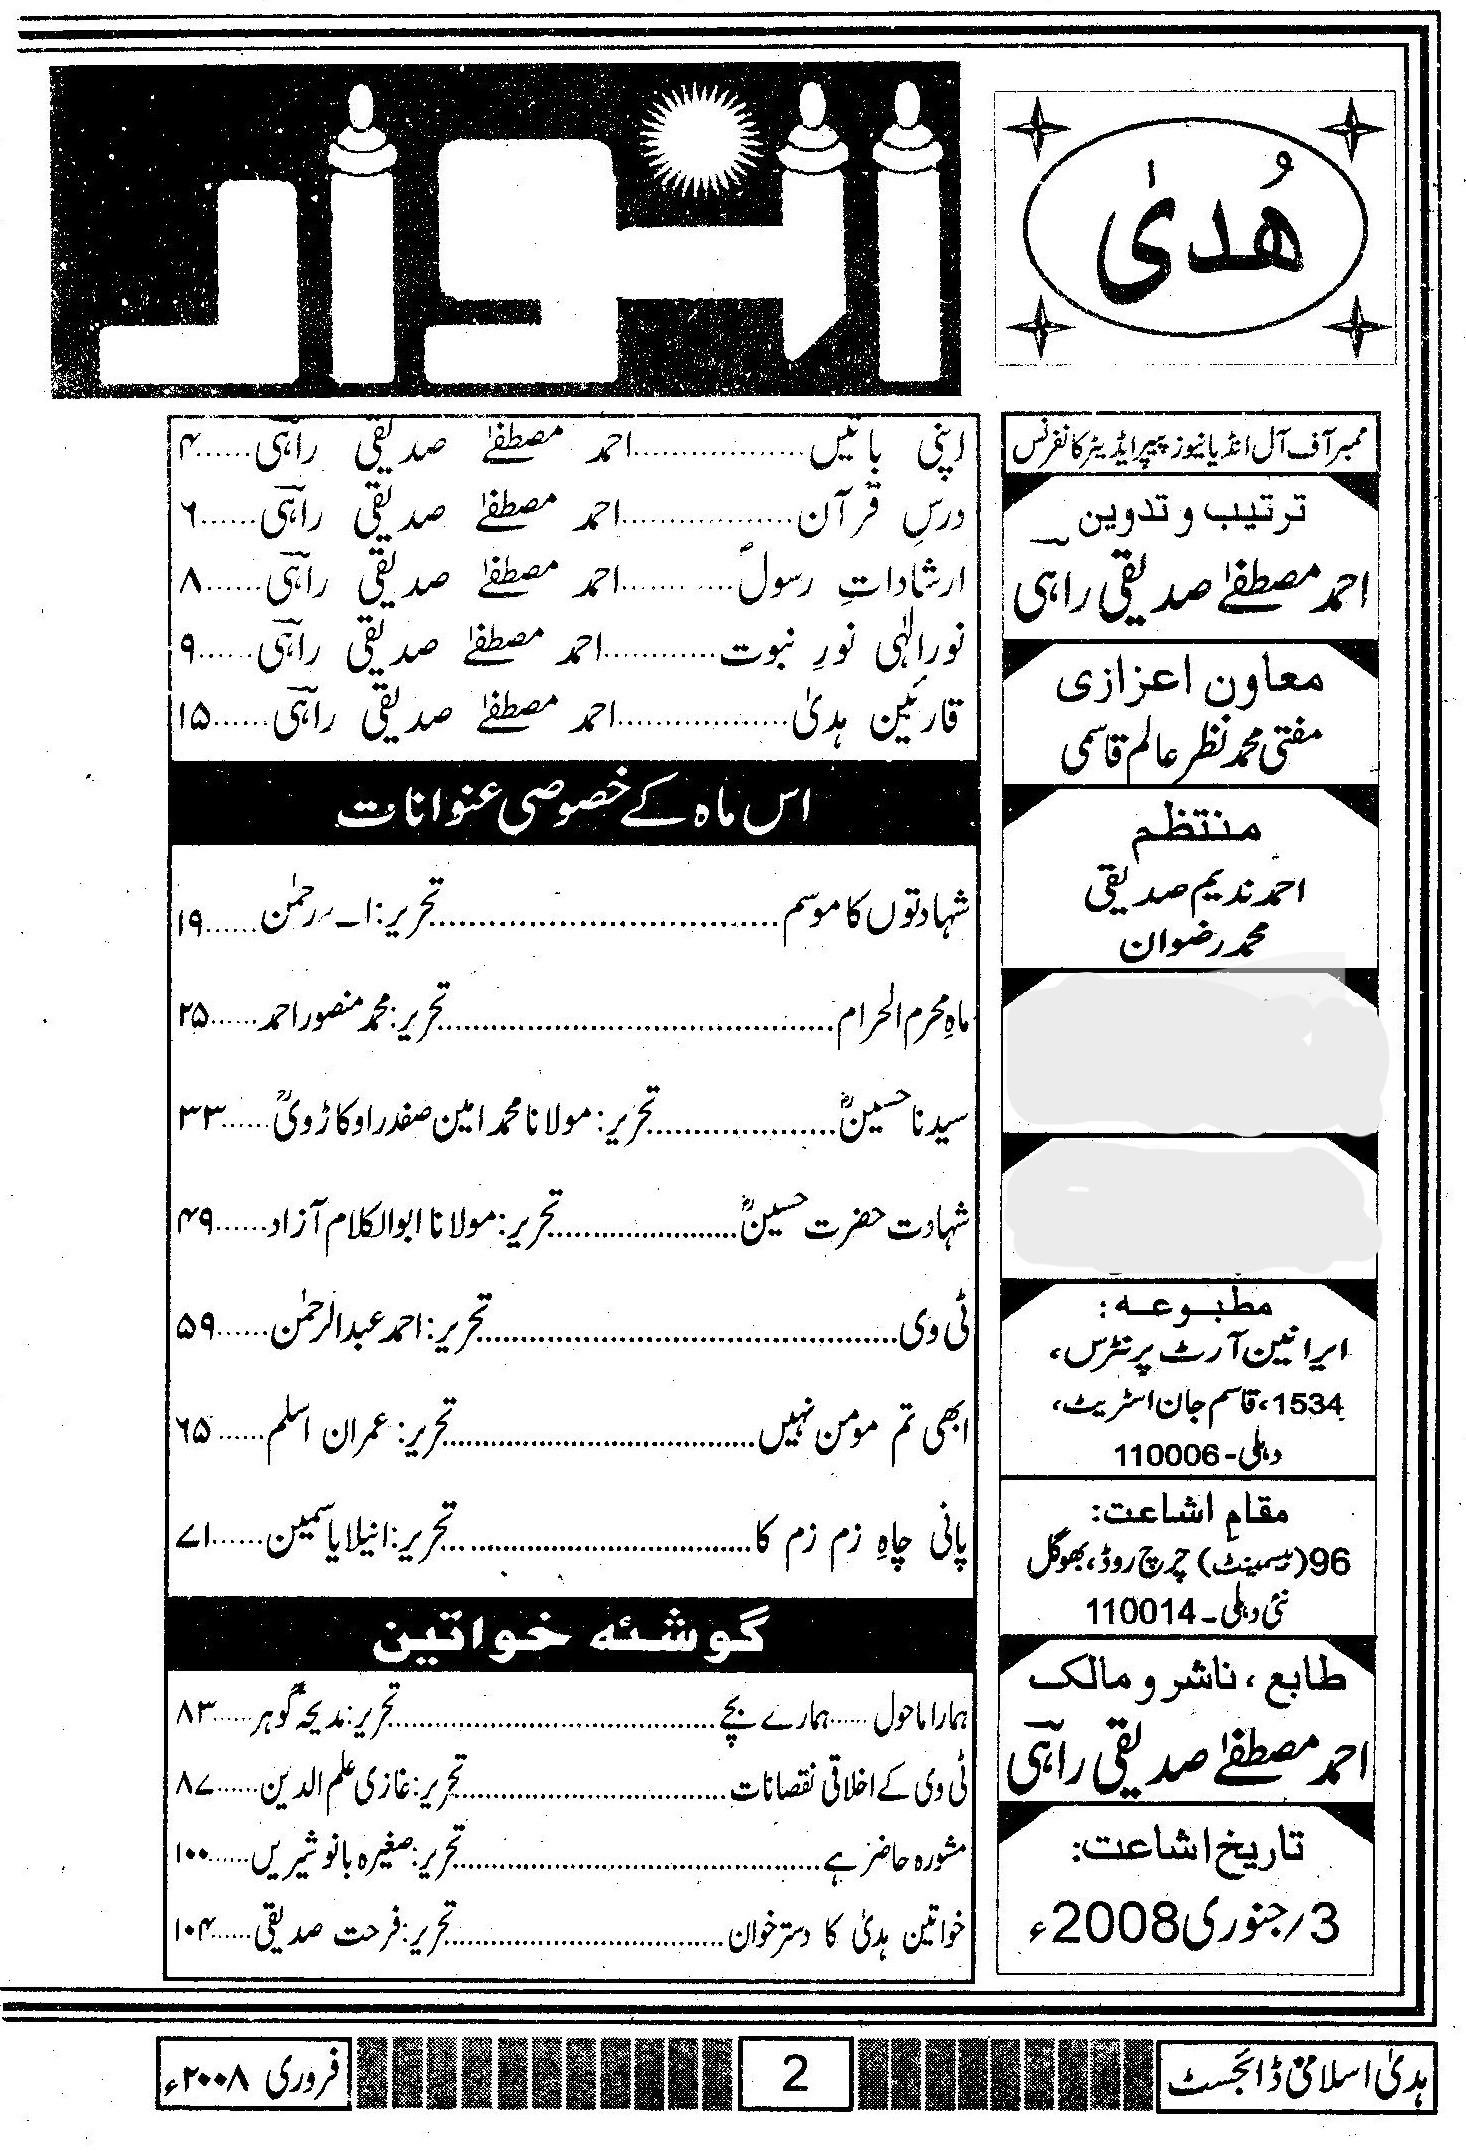 هُدیٰ
انوار
ممبر آف آل انڈیا نیوز پیپر ایڈیٹر کانفرنس
ترتیب و تدوین
احمد مصطفےٰ صدیقی راہیؔ
معاون اعزازی
مفتی محمد نظر عالم قاسمی
منتظم
احمد ندیم صدیقی
محمد رضوان
مطبوعہ:
ایرانین آرٹ پرنٹرس،
1534، قاسم جان اسٹریٹ،
دہلی-110006
مقام اشاعت:
96(بیسمینٹ) چرچ روڈ، بھوگل
نئی دہلی-110014
طابع، ناشر و مالک
احمد مصطفےٰ صدیقی راہیؔ
تاریخ اشاعت:
3/جنوری 2008ء
اپنی باتیں..................احمد مصطفےٰ صدیقی راہیؔ......۴
درسِ قرآن..................احمد مصطفےٰ صدیقی راہیؔ......۶
ارشاداتِ رسولؐ..................احمد مصطفےٰ صدیقی راہیؔ......۸
نورِالٰہی نورِ نبوت..................احمد مصطفےٰ صدیقی راہیؔ......۹
قارئین ہدیٰ..................احمد مصطفےٰ صدیقی راہیؔ......۱۵
اس ماہ کے خصوصی عنوانات
شہادتوں کا موسم..................تحریر: ا۔ر۔رحمٰن......۱۹
ماہِ محرم الحرام..................تحریر: محمد منصور احمد......۲۵
سیدنا حسینؓ..................تحریر: مولانا محمد امین صفدر اوکاڑویؒ......۳۳
شہادت حضرت حسینؓ..................تحریر: مولانا ابوالکلام آزاد......۴۹
ٹی وی..................تحریر: احمد عبدالرحمٰن......۵۹
ابھی تم مومن نہیں..................تحریر: عمران اسلم......۶۵
پانی چاہِ زم زم کا..................تحریر: انیلا یاسمین......۷۱
گوشئہ خواتین
ہمارا ماحول......ہمارے بچے..................تحریر: مدیحہ گوہر......۸۳
ٹی وی کے اخلاقی نقصانات..................تحریر: غازی علم الدین......۸۷
مشورہ حاضر ہے..................تحریر: صغیرہ بانو شیریں......۱۰۰
خواتین ہدیٰ کا دسترخوان..................تحریر: فرحت صدیقی......۱۰۴
ہدیٰ اسلامی ڈائجسٹ
2
فروری ۲۰۰۸ء